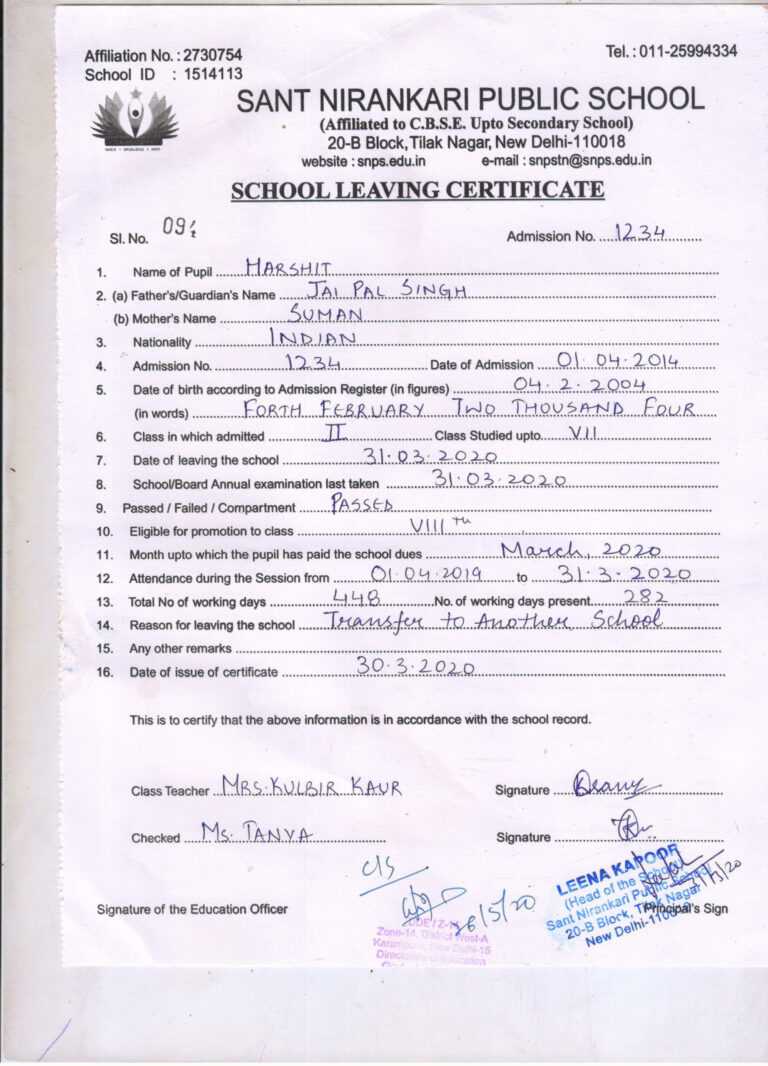 Affiliation No. : 2730754 Tel. : 011-25994334
School ID : 1514113
SANT NIRANKARI PUBLIC SCHOOL
(Affiliated to C.B.S.E. Upto Secondary School)
20-B Block, Tilak Nagar, New Delhi-110018
website : snps.edu.in e-mail : snpstn@snps.edu.in
SCHOOL LEAVING CERTIFICATE
Sl. No. Admission No. 1234
1. Name of Pupil HARSHIT
2. (a) Father's/Guardian's Name JAI PAL SINGH
(b) Mother's Name SUMAN
3. Nationality INDIAN
4. Admission No. 1234 Date of Admission 01.04.2014
5. Date of birth according to Admission Register (in figures) 04.2.2004
(in words) FORTH FEBRUARY TWO THOUSAND FOUR
6. Class in which admitted II Class Studied upto VII
7. Date of leaving the school 31.03.2020
8. School/Board Annual examination last taken 31.03.2020
9. Passed / Failed / Compartment PASSED
10. Eligible for promotion to class VIII Th
11. Month upto which the pupil has paid the school dues March, 2020
12. Attendance during the Session from 01.04.2019 to 31.3.2020
13. Total No of working days 448 No. of working days present 282
14. Reason for leaving the school Transfer to Another School
15. Any other remarks
16. Date of issue of certificate 30.3.2020
This is to certify that the above information is in accordance with the school record.
Class Teacher MRS. KULBIR KAUR Signature
Checked MS. TANYA Signature
C/S
26/5/20
LEENA KAPOOR
(Head of the School)
Sant Nirankari Public School
20-B Block, Tilak Nagar
New Delhi-110018
Signature of the Education Officer Principal's Sign
Zone-14, District West-A
Karampura, New Delhi-15
Directorate of Education